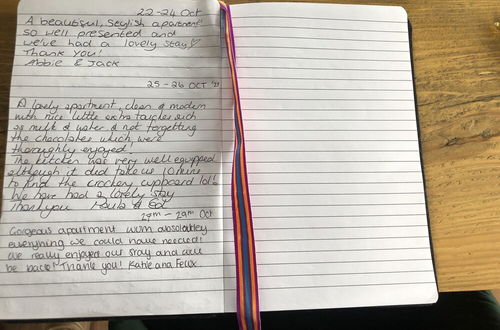 22-24 Oct
A beautiful, stylish apartment
so well presented and
we've had a lovely stay
Thank you!
Abbie & Jack
25 - 26 OCT '21
A lovely apartment, clean & modern
with nice little extra touches such
as milk & water & not forgetting
the chocolates which were
thoroughly enjoyed!
The kitchen was very well equipped
although it did take us 10 mins
to find the crockery cupboard lol!
We have had a lovely stay
Thank you Paula & Ed
27th - 29th Oct
Gorgeous apartment with absolutley
everything we could have needed!
We really enjoyed our stay and will
be back! Thank you! Katie and Felix